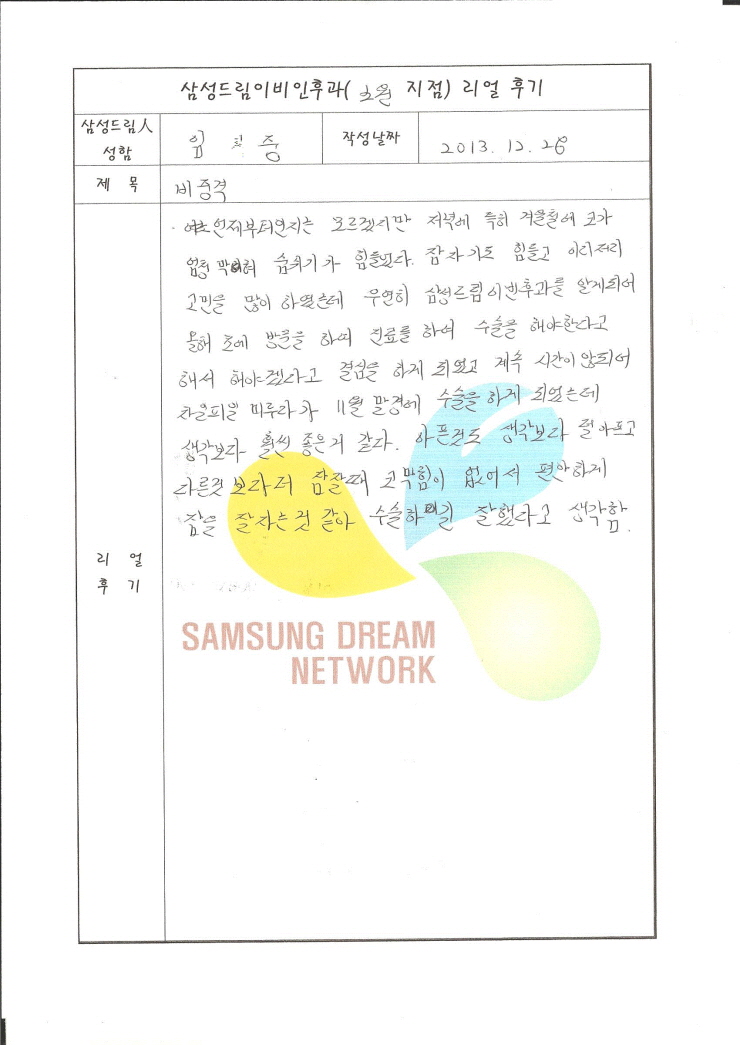 삼성드림이비인후과( 수원 지점) 리얼 후기
삼성드림人 성함
임 중
작성날짜
2013. 12. 26
제 목
비중격
리 얼 후 기
언제부터인지는 모르겠지만 저녁에 특히 겨울철에 코가
엄청 막혀 숨쉬기가 힘들었다. 잠자기도 힘들고 이리저리
고민을 많이 하였는데 우연히 삼성드림이빈후과를 알게되어
올해 초에 방문을 하여 진료를 하여 수술을 해야한다고
해서 해야겠다고 결심을 하게 되었고 계속 시간이 않되어
차일피일 미루다가 11월 말경에 수술을 하게 되었는데
생각보다 훨씬 좋은거 같다. 아픈것도 생각보다 덜아프고
다른것보다 더 잠잘때 코막힘이 없어서 편안하게
잠을 잘자는것 같아 수술하길 잘했다고 생각함.
SAMSUNG DREAM
NETWORK